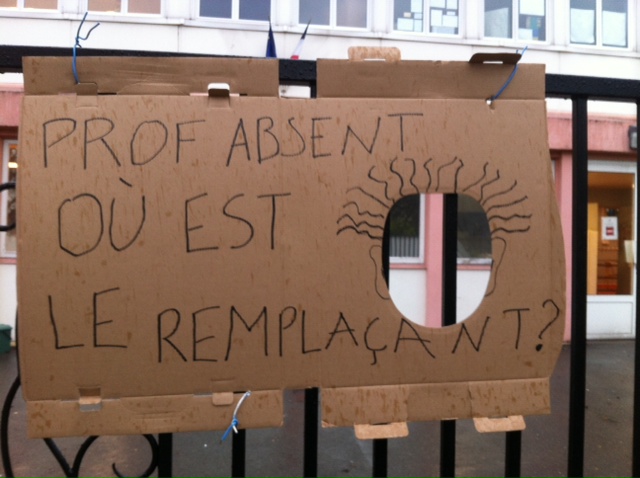 PROF ABSENT
OÙ EST
LE REMPLAÇANT?